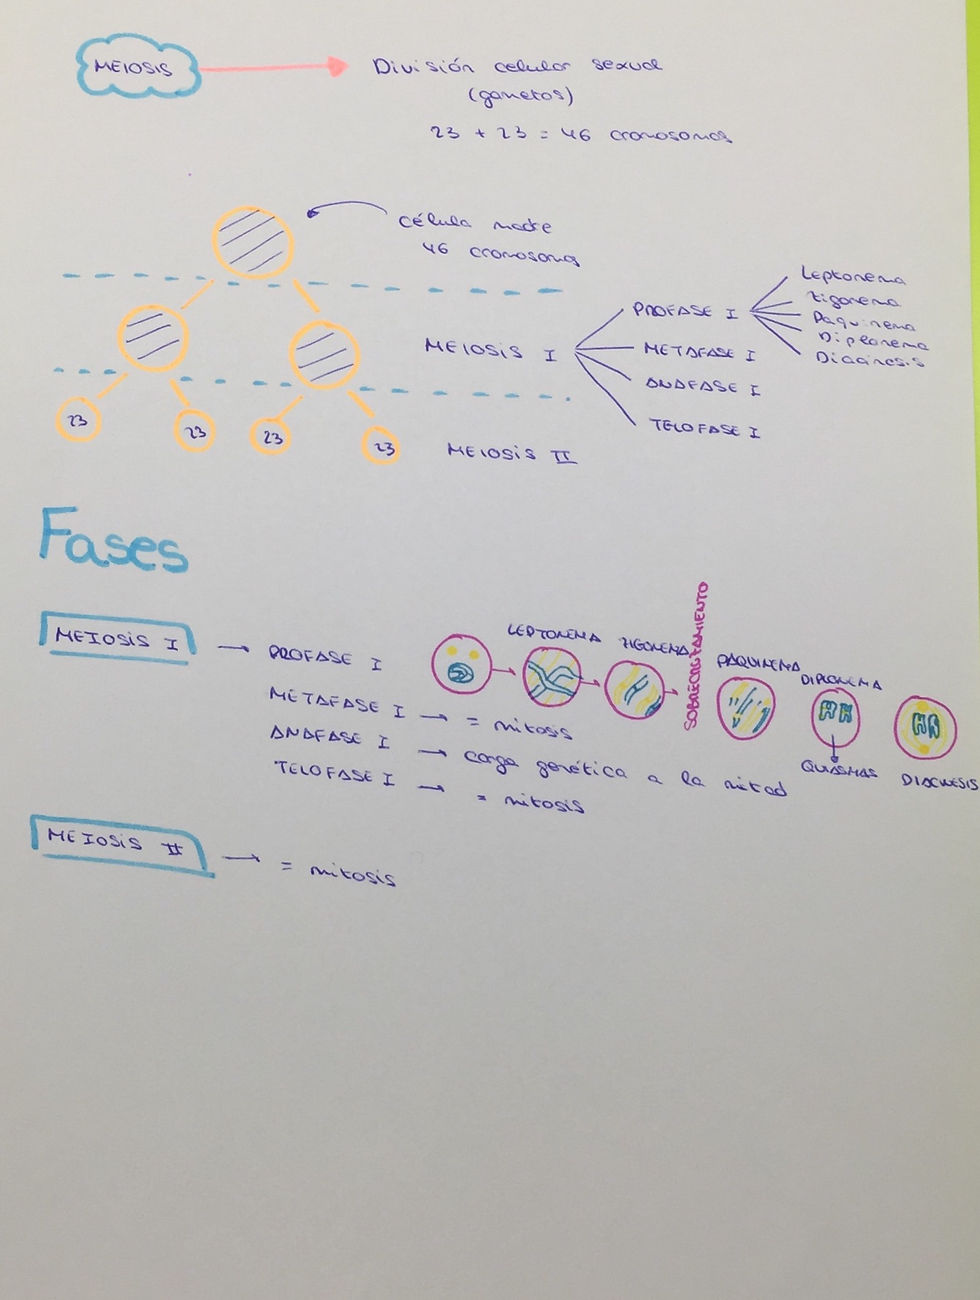 MEIOSIS
División celular sexual
(gametos)
23 + 23 = 46 cromosomas
célula madre
46 cromosomas
MEIOSIS I
PROFASE I
METAFASE I
ANAFASE I
TELOFASE I
Leptonema
Zigonema
Paquinema
Diplonema
Diacinesis
23
23
23
23
MEIOSIS II
Fases
MEIOSIS I
PROFASE I
LEPTONEMA
ZIGONEMA
SOBRECRUZAMIENTO
PAQUINEMA
DIPLONEMA
QUIASMAS
DIACINESIS
METAFASE I = mitosis
ANAFASE I carga genética a la mitad
TELOFASE I = mitosis
MEIOSIS II = mitosis